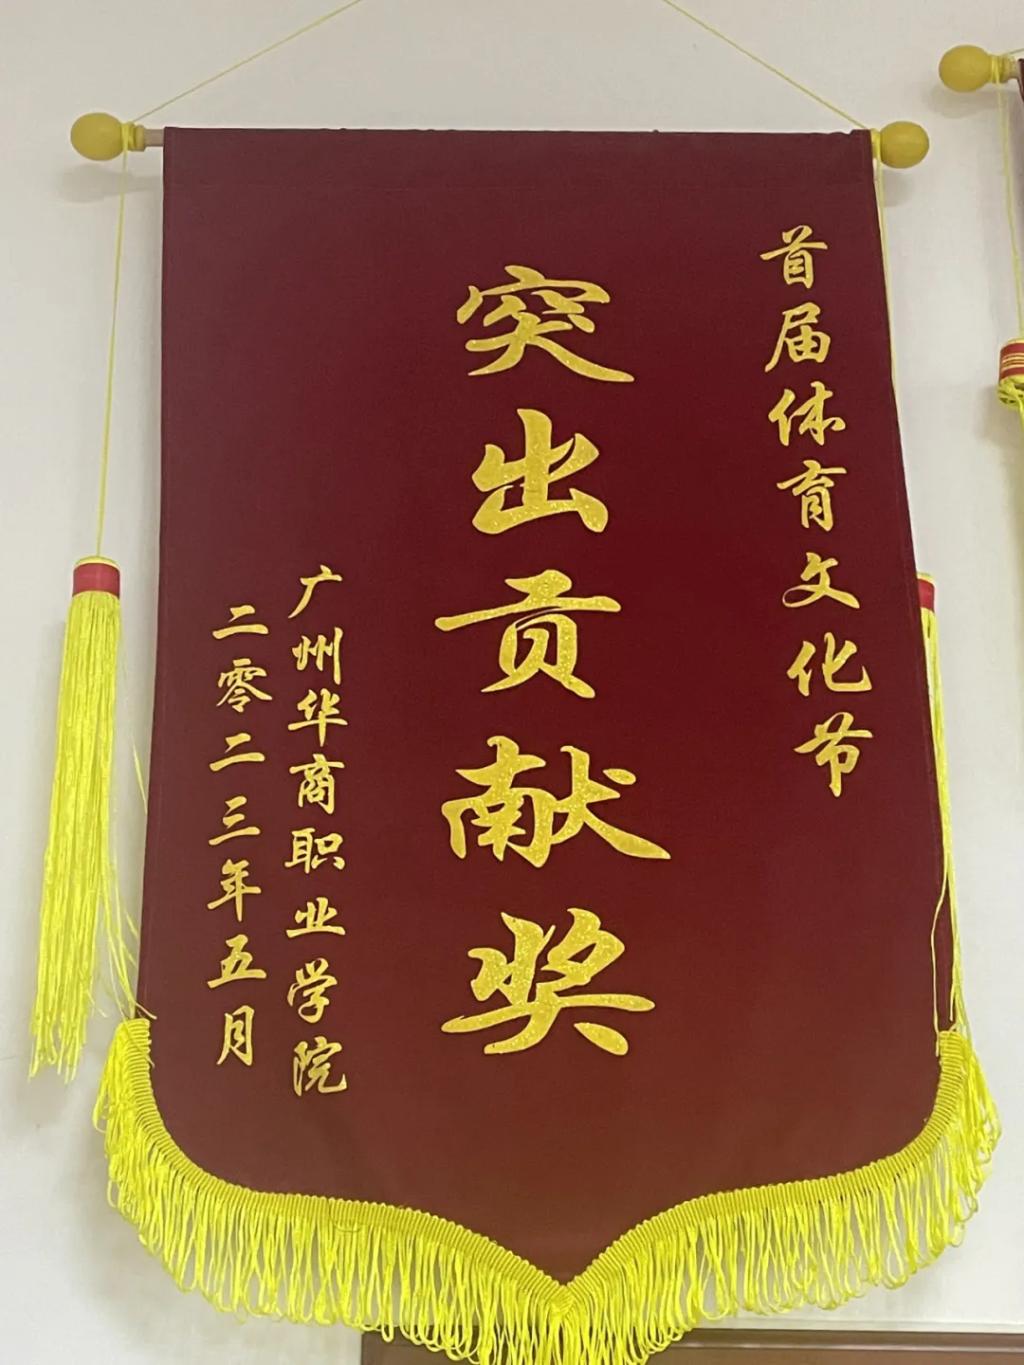 首届体育文化节
突出贡献奖
广州华商职业学院
二零二三年五月